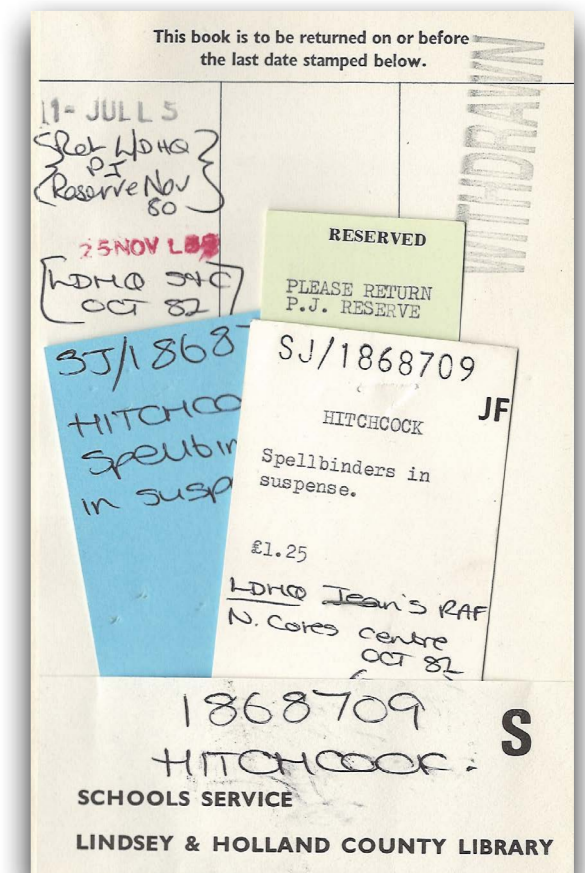 This book is to be returned on or before
the last date stamped below.
WITHDRAWN
11- JUL L 5
Ret L/DHQ
PJ
Reserve Nov
80
25 NOV L
LDHQ
OCT 82
RESERVED
PLEASE RETURN
P.J. RESERVE
SJ/1868
HITCHCO
Spellbin
in susp
SJ/1868709
JF
HITCHCOCK
Spellbinders in
suspense.
£1.25
LDHQ Jean's RAF
N. Cotes centre
OCT 82
1868709
HITCHCOCK.
S
SCHOOLS SERVICE
LINDSEY & HOLLAND COUNTY LIBRARY